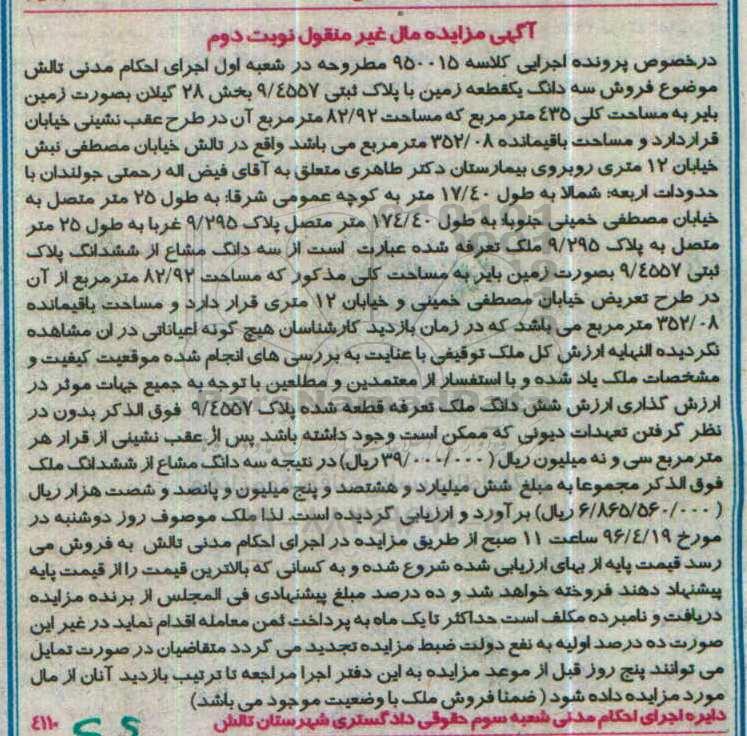 آگهی مزایده مال غیر منقول نوبت دوم
درخصوص پرونده اجرایی کلاسه ۹۵۰۰۱۵ مطروحه در شعبه اول اجرای احکام مدنی تالش
موضوع فروش سه دانگ یکقطعه زمین با پلاک ثبتی ۹/٤۵۵۷ بخش ۲۸ گیلان بصورت زمین
بایر به مساحت کلی ٤۳۵ متر مربع که مساحت ۸۲/۹۲ متر مربع آن در طرح عقب نشینی خیابان
قراردارد و مساحت باقیمانده ۳۵۲/۰۸ متر مربع می باشد واقع در تالش خیابان مصطفی نبش
خیابان ۱۲ متری روبروی بیمارستان دکتر طاهری متعلق به آقای فیض اله رحمتی جولندان با
حدودات اربعه: شمالا به طول ۱۷/٤۰ متر به کوچه عمومی شرقا: به طول ۲۵ متر متصل به
خیابان مصطفی خمینی جنوبا: به طول ۱۷٤/٤۰ متر متصل پلاک ۹/۲۹۵ غربا به طول ۲۵ متر
متصل به پلاک ۹/۲۹۵ ملک تعرفه شده عبارت است از سه دانگ مشاع از ششدانگ پلاک
ثبتی ۹/٤۵۵۷ بصورت زمین بایر به مساحت کلی مذکور که مساحت ۸۲/۹۲ مترمربع از آن
در طرح تعریض خیابان مصطفی خمینی و خیابان ۱۲ متری قرار دارد و مساحت باقیمانده
۳۵۲/۰۸ مترمربع می باشد که در زمان بازدید کارشناسان هیچ گونه اعیاناتی در ان مشاهده
نگردیده النهایه ارزش کل ملک توقیفی با عنایت به بررسی های انجام شده موقعیت کیفیت و
مشخصات ملک یاد شده و با استفسار از معتمدین و مطلعین با توجه به جمیع جهات موثر در
ارزش گذاری ارزش شش دانگ ملک تعرفه قطعه شده پلاک ۹/٤۵۵۷ فوق الذکر بدون در
نظر گرفتن تعهدات دیونی که ممکن است وجود داشته باشد پس از عقب نشینی از قرار هر
مترمربع سی و نه میلیون ریال ( ۳۹/۰۰۰/۰۰۰ ریال) در نتیجه سه دانگ مشاع از ششدانگ ملک
فوق الذکر مجموعا به مبلغ شش میلیارد و هشتصد و پنج میلیون و پانصد و شصت هزار ریال
( ۶/۸۶۵/۵۶۰/۰۰۰ ریال) بر آورد و ارزیابی گردیده است. لذا ملک موصوف روز دوشنبه در
مورخ ۹۶/٤/۱۹ ساعت ۱۱ صبح از طریق مزایده در اجرای احکام مدنی تالش به فروش می
رسد قیمت پایه از بهای ارزیابی شده شروع شده و به کسانی که بالاترین قیمت را از قیمت پایه
پیشنهاد دهند فروخته خواهد شد و ده درصد مبلغ پیشنهادی فی المجلس از برنده مزایده
دریافت و نامبرده مکلف است حداکثر تا یک ماه به پرداخت ثمن معامله اقدام نماید در غیر این
صورت ده درصد اولیه به نفع دولت ضبط مزایده تجدید می گردد متقاضیان در صورت تمایل
می توانند پنج روز قبل از موعد مزایده به این دفتر اجرا مراجعه تا ترتیب بازدید آنان از مال
مورد مزایده داده شود ( ضمنا فروش ملک با وضعیت موجود می باشد)
دایره اجرای احکام مدنی شعبه سوم حقوقی دادگستری شهرستان تالش ٤۱۱۰